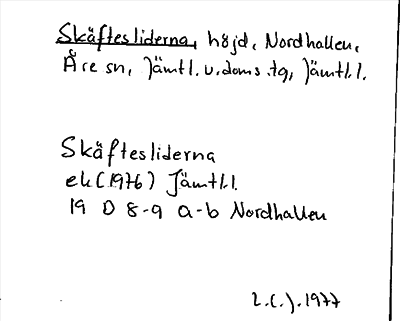 Skäftesliderna, höjd, Nordhallen,
Åre sn, Jämtl. v. doms.tg, Jämtl.l.
Skäftesliderna
ek (1976) Jämtl.l.
19 D 8-9 a-b Nordhallen
L.C.J. 1977